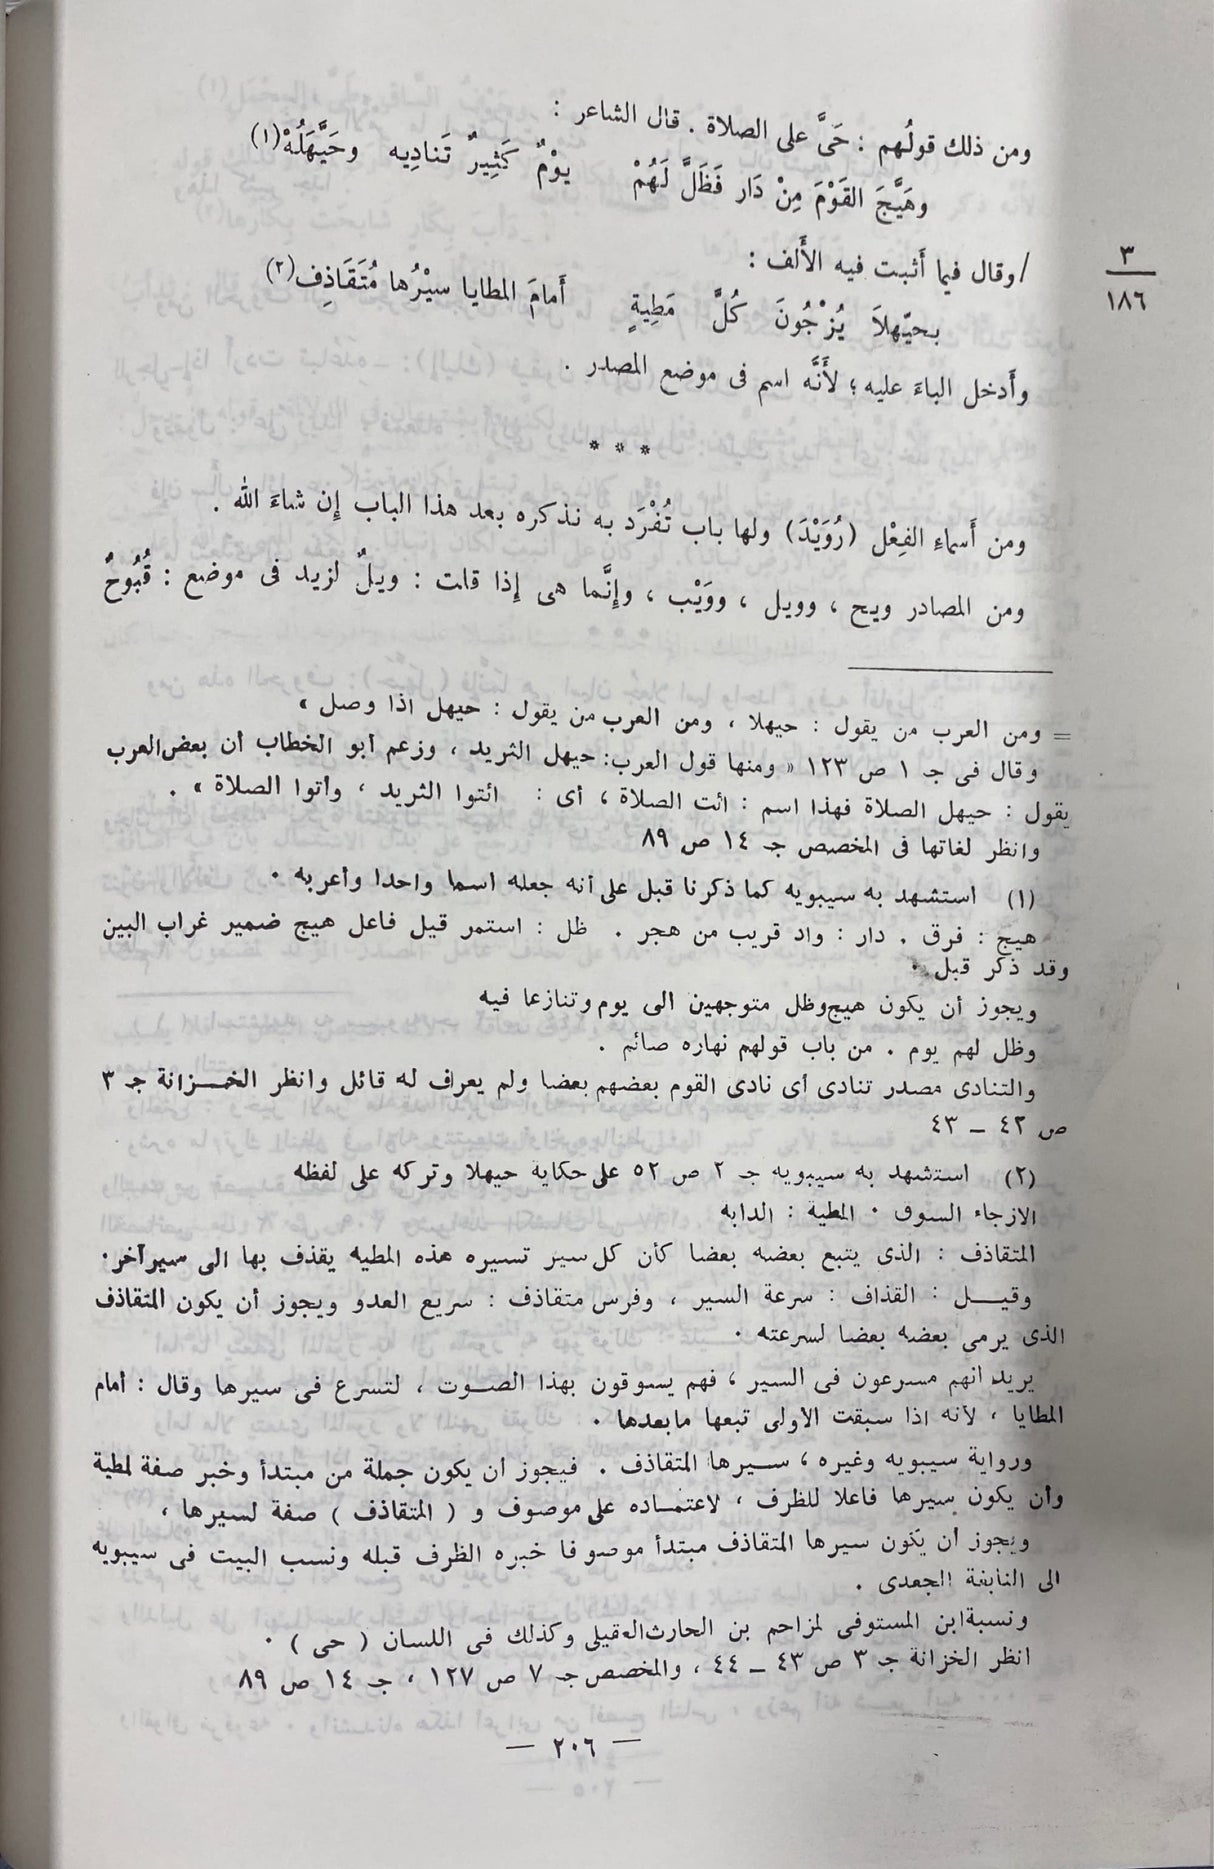 ومن ذلك قولُهم : حَىَّ على الصلاة . قال الشاعر :
وهَيَّجَ القَوْمَ مِنْ دَار فَظَلَّ لَهُمْ يوْمٌ كَثِيرٌ تَنادِيه وحَيَّهَلُهْ(١)
/ وقال فيما أَثبت فيه الأَلف :
بحيّهلاَ يُزْجُونَ كُلَّ مَطِيةٍ أَمامَ المطايا سيْرُها مُتَقَاذِف(٢)
وأَدخل الباءَ عليه ؛ لأَنَّه اسم فى موضع المصدر .
* * *
ومن أَسماءِ الفِعْل (رُوَيْدَ) ولها باب تُفْرَد به نذكره بعد هذا الباب إِن شاءَ الله .
ومن المصادر ويح ، وويل ، ووَيْب ، وإِنَّما هى إِذا قلت : ويلٌ لزيد فى موضع : قُبُوحٌ
٣
١٨٦
= ومن العرب من يقول : حيهلا ، ومن العرب من يقول : حيهل اذا وصل »
وقال فى جـ ١ ص ١٢٣ « ومنها قول العرب: حيهل الثريد ، وزعم أبو الخطاب أن بعض العرب
يقول : حيهل الصلاة فهذا اسم : ائت الصلاة ، أى : ائتوا الثريد ، وأتوا الصلاة » .
وانظر لغاتها فى المخصص جـ ١٤ ص ٨٩
(١) استشهد به سيبويه كما ذكرنا قبل على أنه جعله اسما واحدا وأعربه .
هيج : فرق . دار : واد قريب من هجر . ظل : استمر قيل فاعل هيج ضمير غراب البين
وقد ذكر قبل .
ويجوز أن يكون هيج وظل متوجهين الى يوم وتنازعا فيه
وظل لهم يوم . من باب قولهم نهاره صائم .
والتنادى مصدر تنادى أى نادى القوم بعضهم بعضا ولم يعراف له قائل وانظر الخـــزانة جـ ٣
ص ٤٢ ــ ٤٣
(٢) استشهد به سيبويه جـ ٢ ص ٥٢ على حكاية حيهلا وتركه على لفظه
الازجاء السوق . المطية : الدابه
المتقاذف : الذى يتبع بعضه بعضا كأن كل سير تسيره هذه المطيه يقذف بها الى سير آخر .
وقيـــل : القذاف : سرعة السير ، وفرس متقاذف : سريع العدو ويجوز أن يكون المتقاذف
الذى يرمى بعضه بعضا لسرعته .
يريد أنهم مسرعون فى السير ، فهم يسوقون بهذا الصــوت ، لتسرع فى سيرها وقال : أمام
المطايا ، لأنه اذا سبقت الاولى تبعها ما بعدها .
ورواية سيبويه وغيره ، ســيرها المتقاذف . فيجوز أن يكون جملة من مبتدأ وخبر صفة لمطية
وأن يكون سيرها فاعلا للظرف ، لاعتمـاده على موصوف و ( المتقاذف ) صفة لسيرها ،
ويجوز أن يكون سيرها المتقاذف مبتدأ موصوفا خبره الظرف قبله ونسب البيت فى سيبويه
الى النابغة الجعدى .
ونسبة ابن المستوفى لمزاحم بن الحارث العقيلى وكذلك فى اللسان ( حى ) .
انظر الخزانة جـ ٣ ص ٤٣ ــ ٤٤ ، والمخصص جـ ٧ ص ١٢٧ ، جـ ١٤ ص ٨٩
— ٢٠٦ —